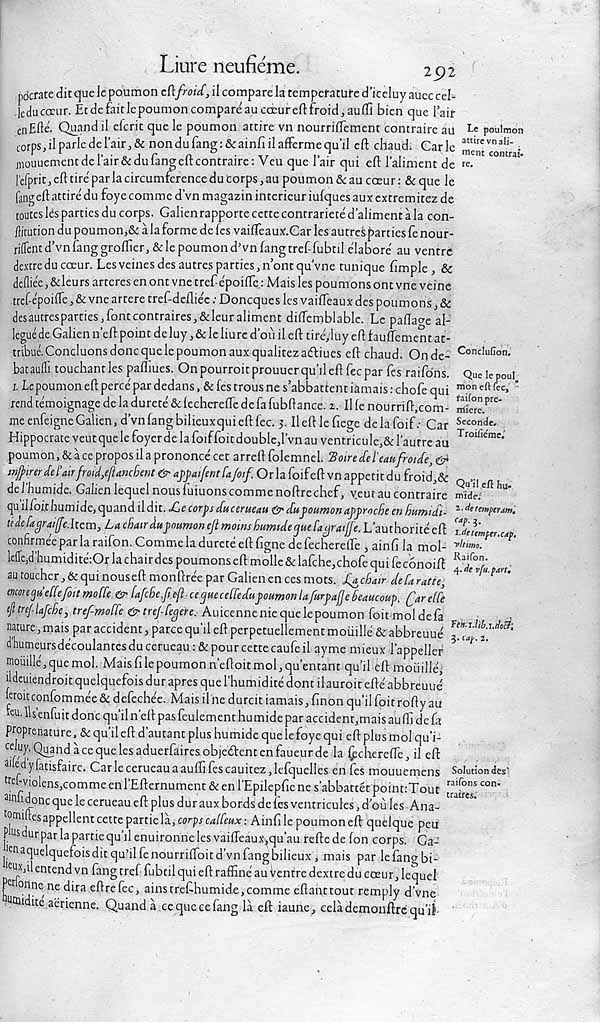 Liure neufiéme. 292
pocrate dit que le poumon est froid, il compare la temperature d'iceluy auec cel-
le du cœur. Et de fait le poumon comparé au cœur est froid, aussi bien que l'air
en Esté. Quand il escrit que le poumon attire vn nourrissement contraire au
corps, il parle de l'air, & non du sang: & ainsi il afferme qu'il est chaud. Car le
mouuement de l'air & du sang est contraire: Veu que l'air qui est l'aliment de
l'esprit, est tiré par la circumference du corps, au poumon & au cœur: & que le
sang est attiré du foye comme d'vn magazin interieur iusques aux extremitez de
toutes les parties du corps. Galien rapporte cette contrarieté d'aliment à la con-
stitution du poumon, & à la forme de ses vaisseaux. Car les autres parties se nour-
rissent d'vn sang grossier, & le poumon d'vn sang tres-subtil élaboré au ventre
dextre du cœur. Les veines des autres parties, n'ont qu'vne tunique simple, &
desliée, & leurs arteres en ont vne tres-époisse: Mais les poumons ont vne veine
tres-époisse, & vne artere tres-desliée: Doncques les vaisseaux des poumons, &
des autres parties, sont contraires, & leur aliment dissemblable. Le passage al-
legué de Galien n'est point de luy, & le liure d'où il est tiré, luy est faussement at-
tribué. Concluons donc que le poumon aux qualitez actiues est chaud. On de-
bat aussi touchant les passiues. On pourroit prouuer qu'il est sec par ses raisons.
1. Le poumon est percé par dedans, & ses trous ne s'abbattent iamais: chose qui
rend témoignage de la dureté & secheresse de sa substance. 2. Il se nourrist, com-
me enseigne Galien, d'vn sang bilieux qui est sec. 3. Il est le siege de la soif: Car
Hippocrate veut que le foyer de la soif soit double, l'vn au ventricule, & l'autre au
poumon, & à ce propos il a prononcé cet arrest solemnel. Boire de l'eau froide, &
inspirer de l'air froid, estanchent & appaisent la soif. Or la soif est vn appetit du froid, &
de l'humide. Galien lequel nous suiuons comme nostre chef, veut au contraire
qu'il soit humide, quand il dit. Le corps du cerueau & du poumon approche en humidi-
té de la graisse. Item, La chair du poumon est moins humide que la graisse. L'authorité est
confirmée par la raison. Comme la dureté est signe de secheresse, ainsi la mol-
lesse, d'humidité: Or la chair des poumons est molle & lasche, chose qui se cónoist
au toucher, & qui nous est monstrée par Galien en ces mots. La chair de la ratte,
encore qu'elle soit molle & lasche, si est-ce que celle du poumon la surpasse beaucoup. Car elle
est tres-lasche, tres-molle & tres-legere. Auicenne nie que le poumon soit mol de sa
nature, mais par accident, parce qu'il est perpetuellement moüillé & abbreuué
d'humeurs découlantes du cerueau: & pour cette cause il ayme mieux l'appeller
moüillé, que mol. Mais si le poumon n'estoit mol, qu'entant qu'il est moüillé,
il deuiendroit quelquefois dur apres que l'humidité dont il auroit esté abbreuué
seroit consommée & desechée. Mais il ne durcit iamais, sinon qu'il soit rosty au
feu. Il s'ensuit donc qu'il n'est pas seulement humide par accident, mais aussi de sa
propre nature, & qu'il est d'autant plus humide que le foye qui est plus mol qu'i-
celuy. Quand à ce que les aduersaires obiectent en faueur de la secheresse, il est
aisé d'y satisfaire. Car le cerueau a aussi ses cauitez, lesquelles en ses mouuemens
tres-violens, comme en l'Esternument & en l'Epilepsie ne s'abbattét point: Tout
ainsi donc que le cerueau est plus dur aux bords de ses ventricules, d'où les Ana-
tomistes appellent cette partie là, corps calleux: Ainsi le poumon est quelque peu
plus dur par la partie qu'il enuironne les vaisseaux, qu'au reste de son corps. Ga-
lien a quelquefois dit qu'il se nourrissoit d'vn sang bilieux, mais par le sang bi-
lieux, il entend vn sang tres subtil qui est raffiné au ventre dextre du cœur, lequel
personne ne dira estre sec, ains tres-humide, comme estant tout remply d'vne
humidité aërienne. Quand à ce que ce sang là est iaune, celà demonstre qu'il
Le poulmon
attire vn ali-
ment contrai-
re.
Conclusion.
Que le poul
mon est sec,
raison pre-
miere.
Seconde.
Troisiéme.
Qu'il est hu-
mide.
2. de temperam.
cap. 3.
1. de temper. cap.
vltimo.
Raison.
4. de vsu. part.
Fen. 1. lib. 1. doct.
3. cap. 2.
Solution des
raisons con-
traires.